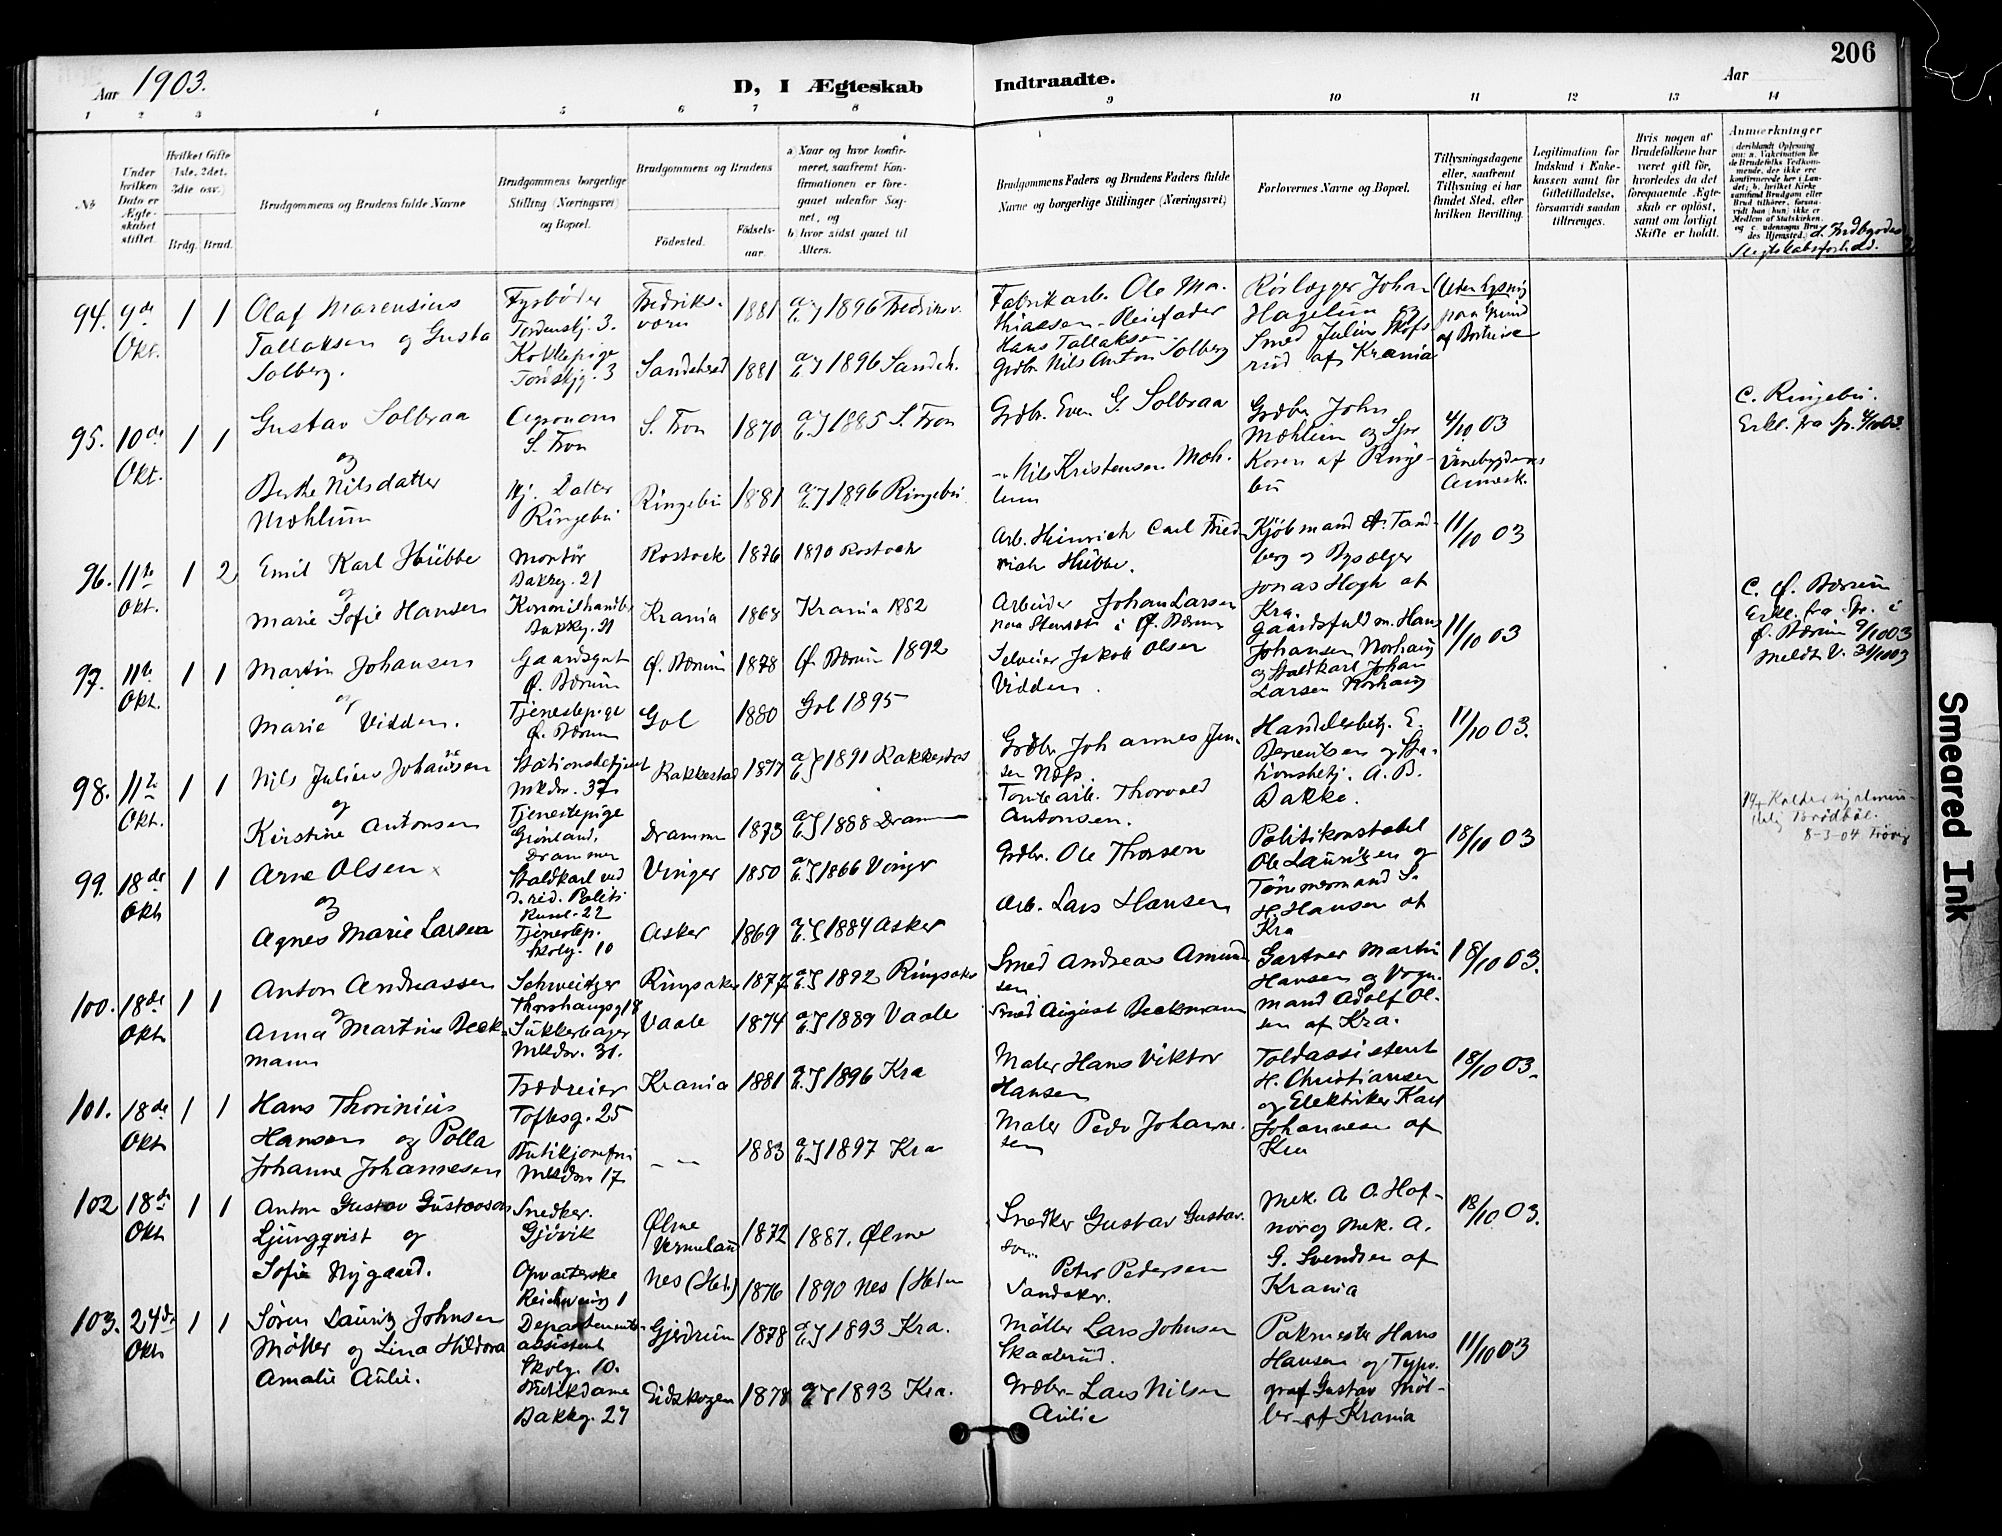 206
Aar 1903.
D, I Ægteskab Indtraadte.
Aar
1 2 3 4 5 6 7 8 9 10 11 12 13 14
No
Under hvilken Dato er Ægteskabet stiftet.
Hvilket Gifte (1ste, 2det, 3die osv.)
Brdg. Brud.
Brudgommens og Brudens fulde Navne
Brudgommens borgerlige Stilling (Næringsvei) og Bopæl.
Brudgommens og Brudens
Födested.
Födselsaar.
a) Naar og hvor konfirmeret, saafremt Konfirmationen er foregaaet udenfor Sognet, og
b) hvor sidst gaaet til Alters.
Brudgommens Faders og Brudens Faders fulde Navne og borgerlige Stillinger (Næringsvei)
Forlovernes Navne og Bopæl.
Tillysningsdagene eller, saafremt Tillysning ei har fundet Sted, efter hvilken Bevilling.
Legitimation for Indskud i Enkekassen samt for Giftetilladelse, forsaavidt saadan tiltrænges.
Hvis nogen af Brudefolkene har været gift för, hvorledes da det foregaaende Ægteskab er oplöst, samt om lovligt Skifte er holdt.
Anmerkninger
94. 9de Okt. 1 1
Olaf Marensius
Tallaksen og Gusta
Solberg.
Fyrbøder
Tordenskj. 3.
Kokkepige
Tordskjg. 3
Fredriksværn 1881 1896 Fredriksv.
Sandeherred 1881 1896 Sandeh.
Fabrikarb. Ole Mathiassen - Pleiefader
Hans Tallaksen.
Grdbr. Nils Anton Solberg
Rørlægger Johan
Hagelun og
Smed Julius Skofsrud af Krania
Uden lysning
paa Grund
af Bortreise
95. 10de Okt. 1 1
Gustav Solbraa
og
Berthe Nilsdatter
Mæhlum
Agronom
S. Fron
Hj. Datter
Ringebu
S. Fron 1870 1885 S. Fron
Ringebu 1881 1896 Ringebu
Grdbr. Even G. Solbraa
Nils Kristensen Mæhlum
Grdbr John
Mæhlum og Spr
Koren af Ringebu
4/10 03
Venebygdens
Annexk.
C. Ringebu.
Erkl. fra Sp. 4/10 03.
96. 11te Okt. 1 2
Emil Karl Hübbe
og
Marie Sofie Hansen
Montør
Bakkg. 21
Bakkg. 21
Rostock 1876 1890 Rostock
Krania 1868 Krania 1882
Arb. Heinrich Carl Friedrich Hübbe.
Arbeider Johan Larsen
Kjøbmand A. Tandberg og Bysælger
Jonas Hogh af
Kra.
11/10 03
97. 11te Okt. 1 1
Martin Johansen
og
Marie Vidden.
Gaardsgut
Ø. Bærum
Tjenestepige
Ø. Bærum
Ø. Bærum 1878 Ø. Bærum 1892
Gol 1880 Gol 1895
Selveier Jakob Olsen
Vidden.
Gaardsfuldm. Hans
Johansen Norhaug
og Staldkarl Johan
Larsen Norhaug
11/10 03
C. Ø. Bærum
Erkl. fra Sp. i
Ø. Bærum 9/10 03
Meldt V. 31/10 03
98. 11te Okt. 1 1
Nils Julius Johansen
og
Kirstine Antonsen
Stationsbetjent
Mkdsv. 37
Tjenestepige
Grønland,
Drammen
Rakkestad 1877 1891 Rakkestad
Drammen 1873 1888 Drammen
Grdbr Johannes Jensen Næss.
Tomtearb. Thorvald
Antonsen.
Handelsbetj. E.
Berentsen og Stationsbetj. A. B.
Bakke.
11/10 03.
8-3-04
99. 18de Okt 1 1
Arne Olsen
og
Agnes Marie Larsen
Staldkarl ved
d. rid. Politi
Ruml. 22
Tjenestep.
Skolg. 10
Vinger 1850 1866 Vinger
Asker 1869 1884 Asker
Grdbr. Ole Thorsen
Arb. Lars Hansen
Politikonstabel
Ole Lauritzen og
Tømmermand S.
H. Hansen af
Kra
18/10 03
100. 18de Okt 1 1
Anton Andreassen
og
Anna Martine Beckmann
Schweitzer
Thorshaugsg 18
Sukkerbager
Mkdsv. 31.
Ringsaker 1877 1892 Ringsaker
Vaale 1874 1889 Vaale
Smed Andreas Amundsen
Smed August Beckmann
Gartner Martin
Hansen og Vognmand Adolf Olsen af Kra.
18/10 03.
101. 18de Okt 1 1
Hans Thorinius
Hansen og Polla
Johanne Johannesen
Trædreier
Toftesg. 25
Butikjomfru
Mkdsv 17
Krania 1881 1896 Kra
— „ — 1883 1897 Kra
Maler Hans Viktor
Hansen
Maler Peder Johannesen
Toldassistent
H. Christiansen
og Elektriker Karl
Johannesen af
Kra
18/10 03.
102 18de Okt 1 1
Anton Gustav Gustavson
Ljungqvist og
Sofie Nygaard.
Snedker.
Gjøvik
Opvarterske
Ølme
Vermeland 1872 1887. Ølme
Nes (Hed.) 1876 1890 Nes (Hedm
Snedker Gustav Gustavson
Peter Pedersen
Sandaker.
Mek. A. O. Hofnor og Mek. A.
G. Svendsen af
Krania
18/10 03.
103. 24de Okt 1 1
Søren Lauritz Johnsen
Møller og Lina Hildora
Amalie Aulie.
Departements-
assistent
Skolg. 10.
Butikdame
Bakkg. 27
Gjerdrum 1878 1893 Kra.
Eidskogen 1878 1893 Kra.
Møller Lars Johnsen
Skaaterud.
Grdbr Lars Nilsen
Aulie
Pakmester Hans
Hansen og Typograf Gustav Møller af Krania
11/10 03
Smeared Ink